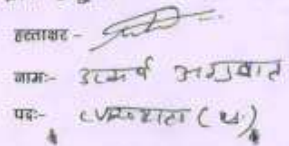 हस्ताक्षर:-
नाम:- उत्कर्ष अग्रवाल
पद:-